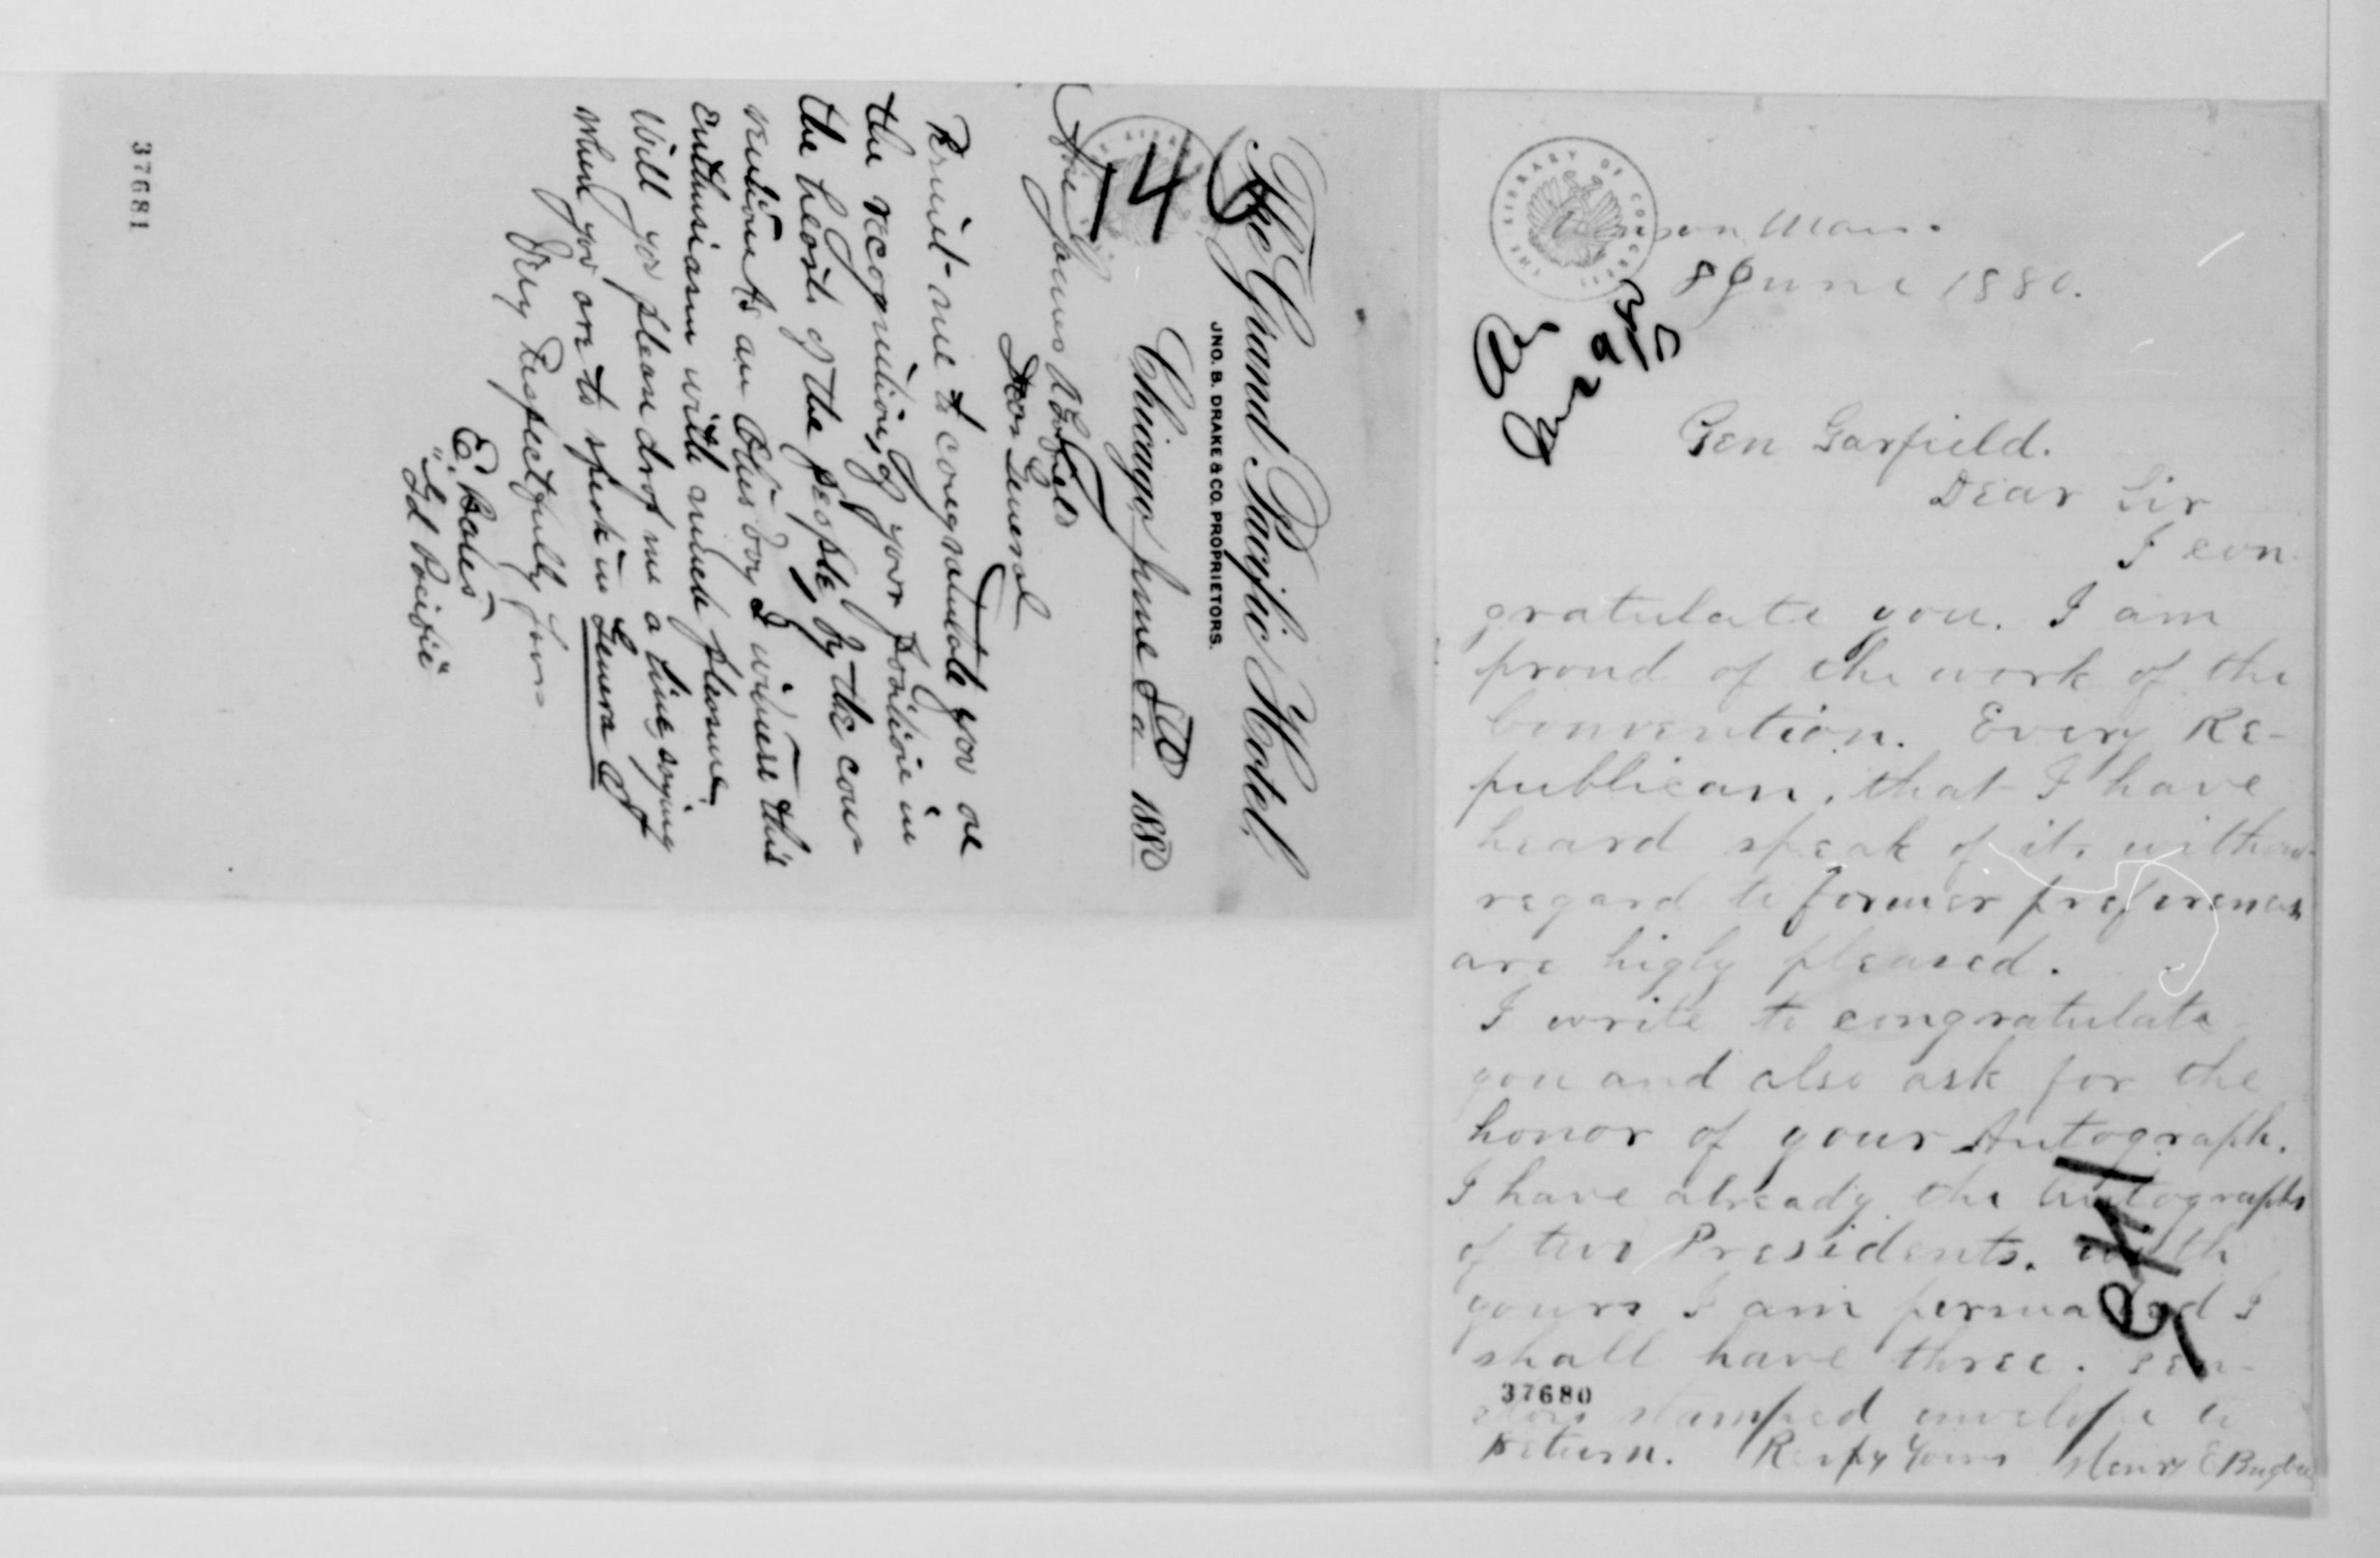 The Grand Pacific Hotel,
JNO. B. DRAKE & CO. PROPRIETORS.
Chicago June 8th 1880
140
James A Garfield
Dear General
Permit me to congratulate you on
the recognition, of your position in
the hearts of the people, by the con-
vention As an Ohio boy I witness this
Enthusiasm with much pleasure.
Will you please drop me a line, saying
when you are to speak in Geneva O
Very Respectfully yours
E. Bates
"Gd Pacific"
37681
THE LIBRARY OF CONGRESS
Mass.
8 June 1880.
Gen Garfield.
Dear Sir
I con-
gratulate you. I am
proud of the work of the
Convention. Every Re-
publican, that I have
heard speak of it, without
regard to former preferences
are higly pleased.
I write to congratulate
you and also ask for the
honor of your Autograph.
I have already the Autographs
of two Presidents. with
yours I am persuaded I
shall have three.
37680
stamped envelope to
return. Respy Yours Henry E Bugbee
141